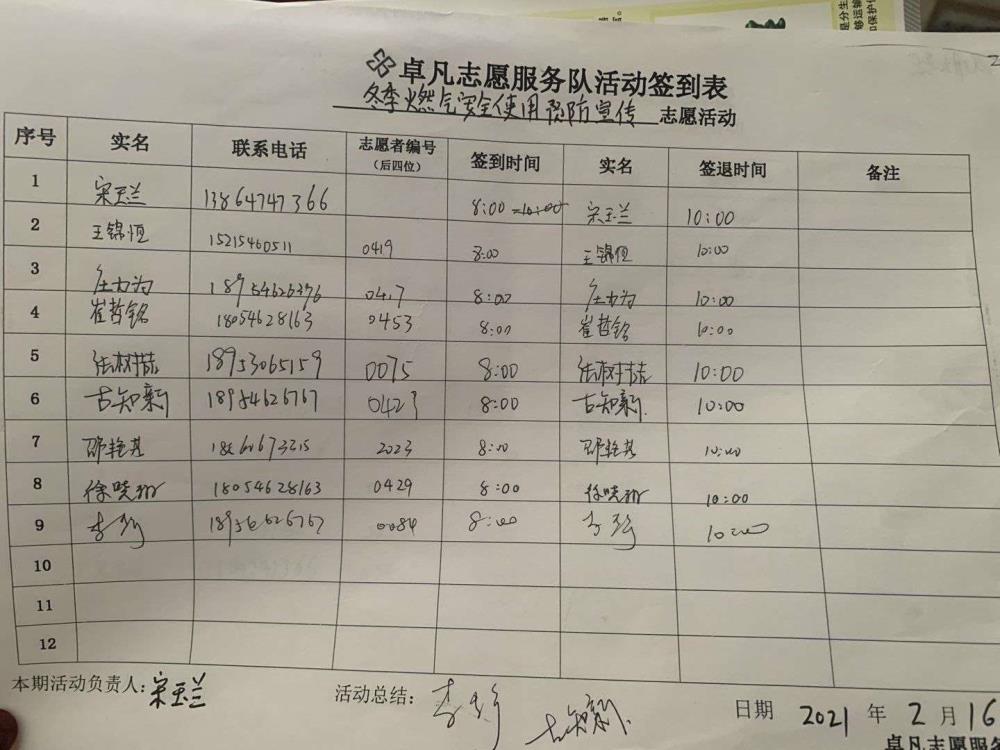 卓凡志愿服务队活动签到表
冬季燃气安全使用预防宣传 志愿活动
序号 实名 联系电话 志愿者编号（后四位） 签到时间 实名 签退时间 备注
1 宋玉兰 13864747366 8:00 宋玉兰 10:00
2 王锦恒 15215460511 0419 8:00 王锦恒 10:00
3 18954626376 0417 8:00 10:00
4 崔哲铭 18054628163 0453 8:00 崔哲铭 10:00
5 张树喆 18953065159 0075 8:00 张树喆 10:00
6 古知新 18954626767 0423 8:00 古知新 10:00
7 邵艳其 2023 8:00 邵艳其 10:00
8 徐晓 18054628163 0429 8:00 徐晓 10:00
9 李 0084 8:00 李 10:00
10
11
12
本期活动负责人：宋玉兰 活动总结： 李 古知新 日期 2021 年 2 月 16
卓凡志愿服务